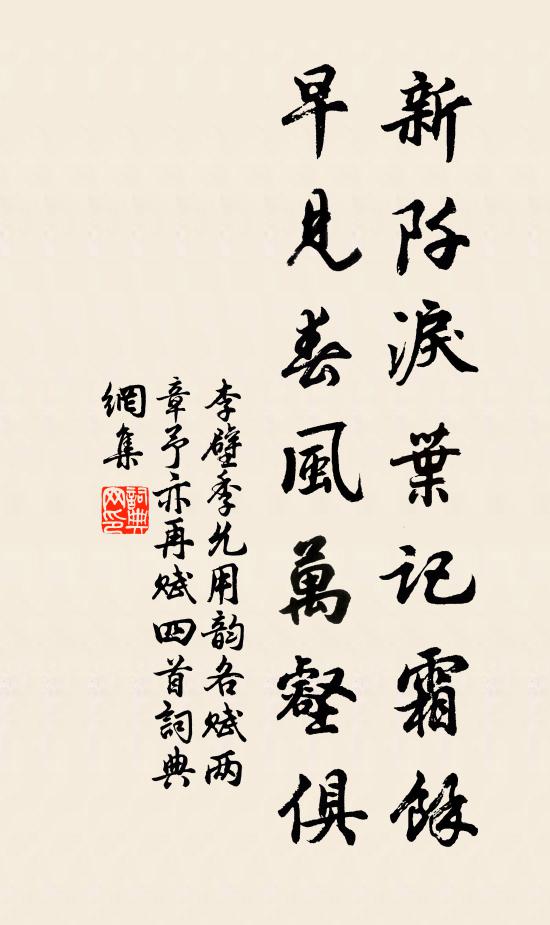 新阡淚葉記霜餘
早見春風萬壑俱
李壁季允用韵各赋两
章予亦再赋四首詞典
網集
詞典
网印